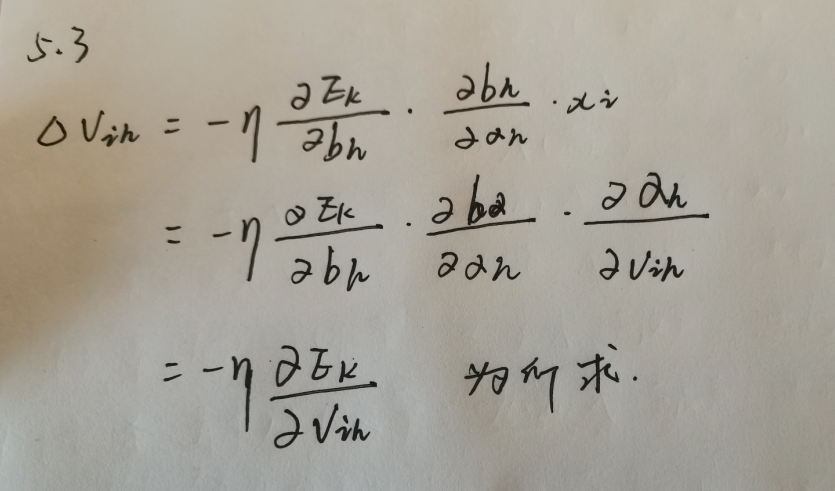 5.3
Δv_{ih} = -η \frac{∂E_k}{∂b_h} · \frac{∂b_h}{∂α_h} · x_i
= -η \frac{∂E_k}{∂b_h} · \frac{∂b_α}{∂α_h} · \frac{∂α_h}{∂v_{ih}}
= -η \frac{∂E_k}{∂v_{ih}} 为所求.